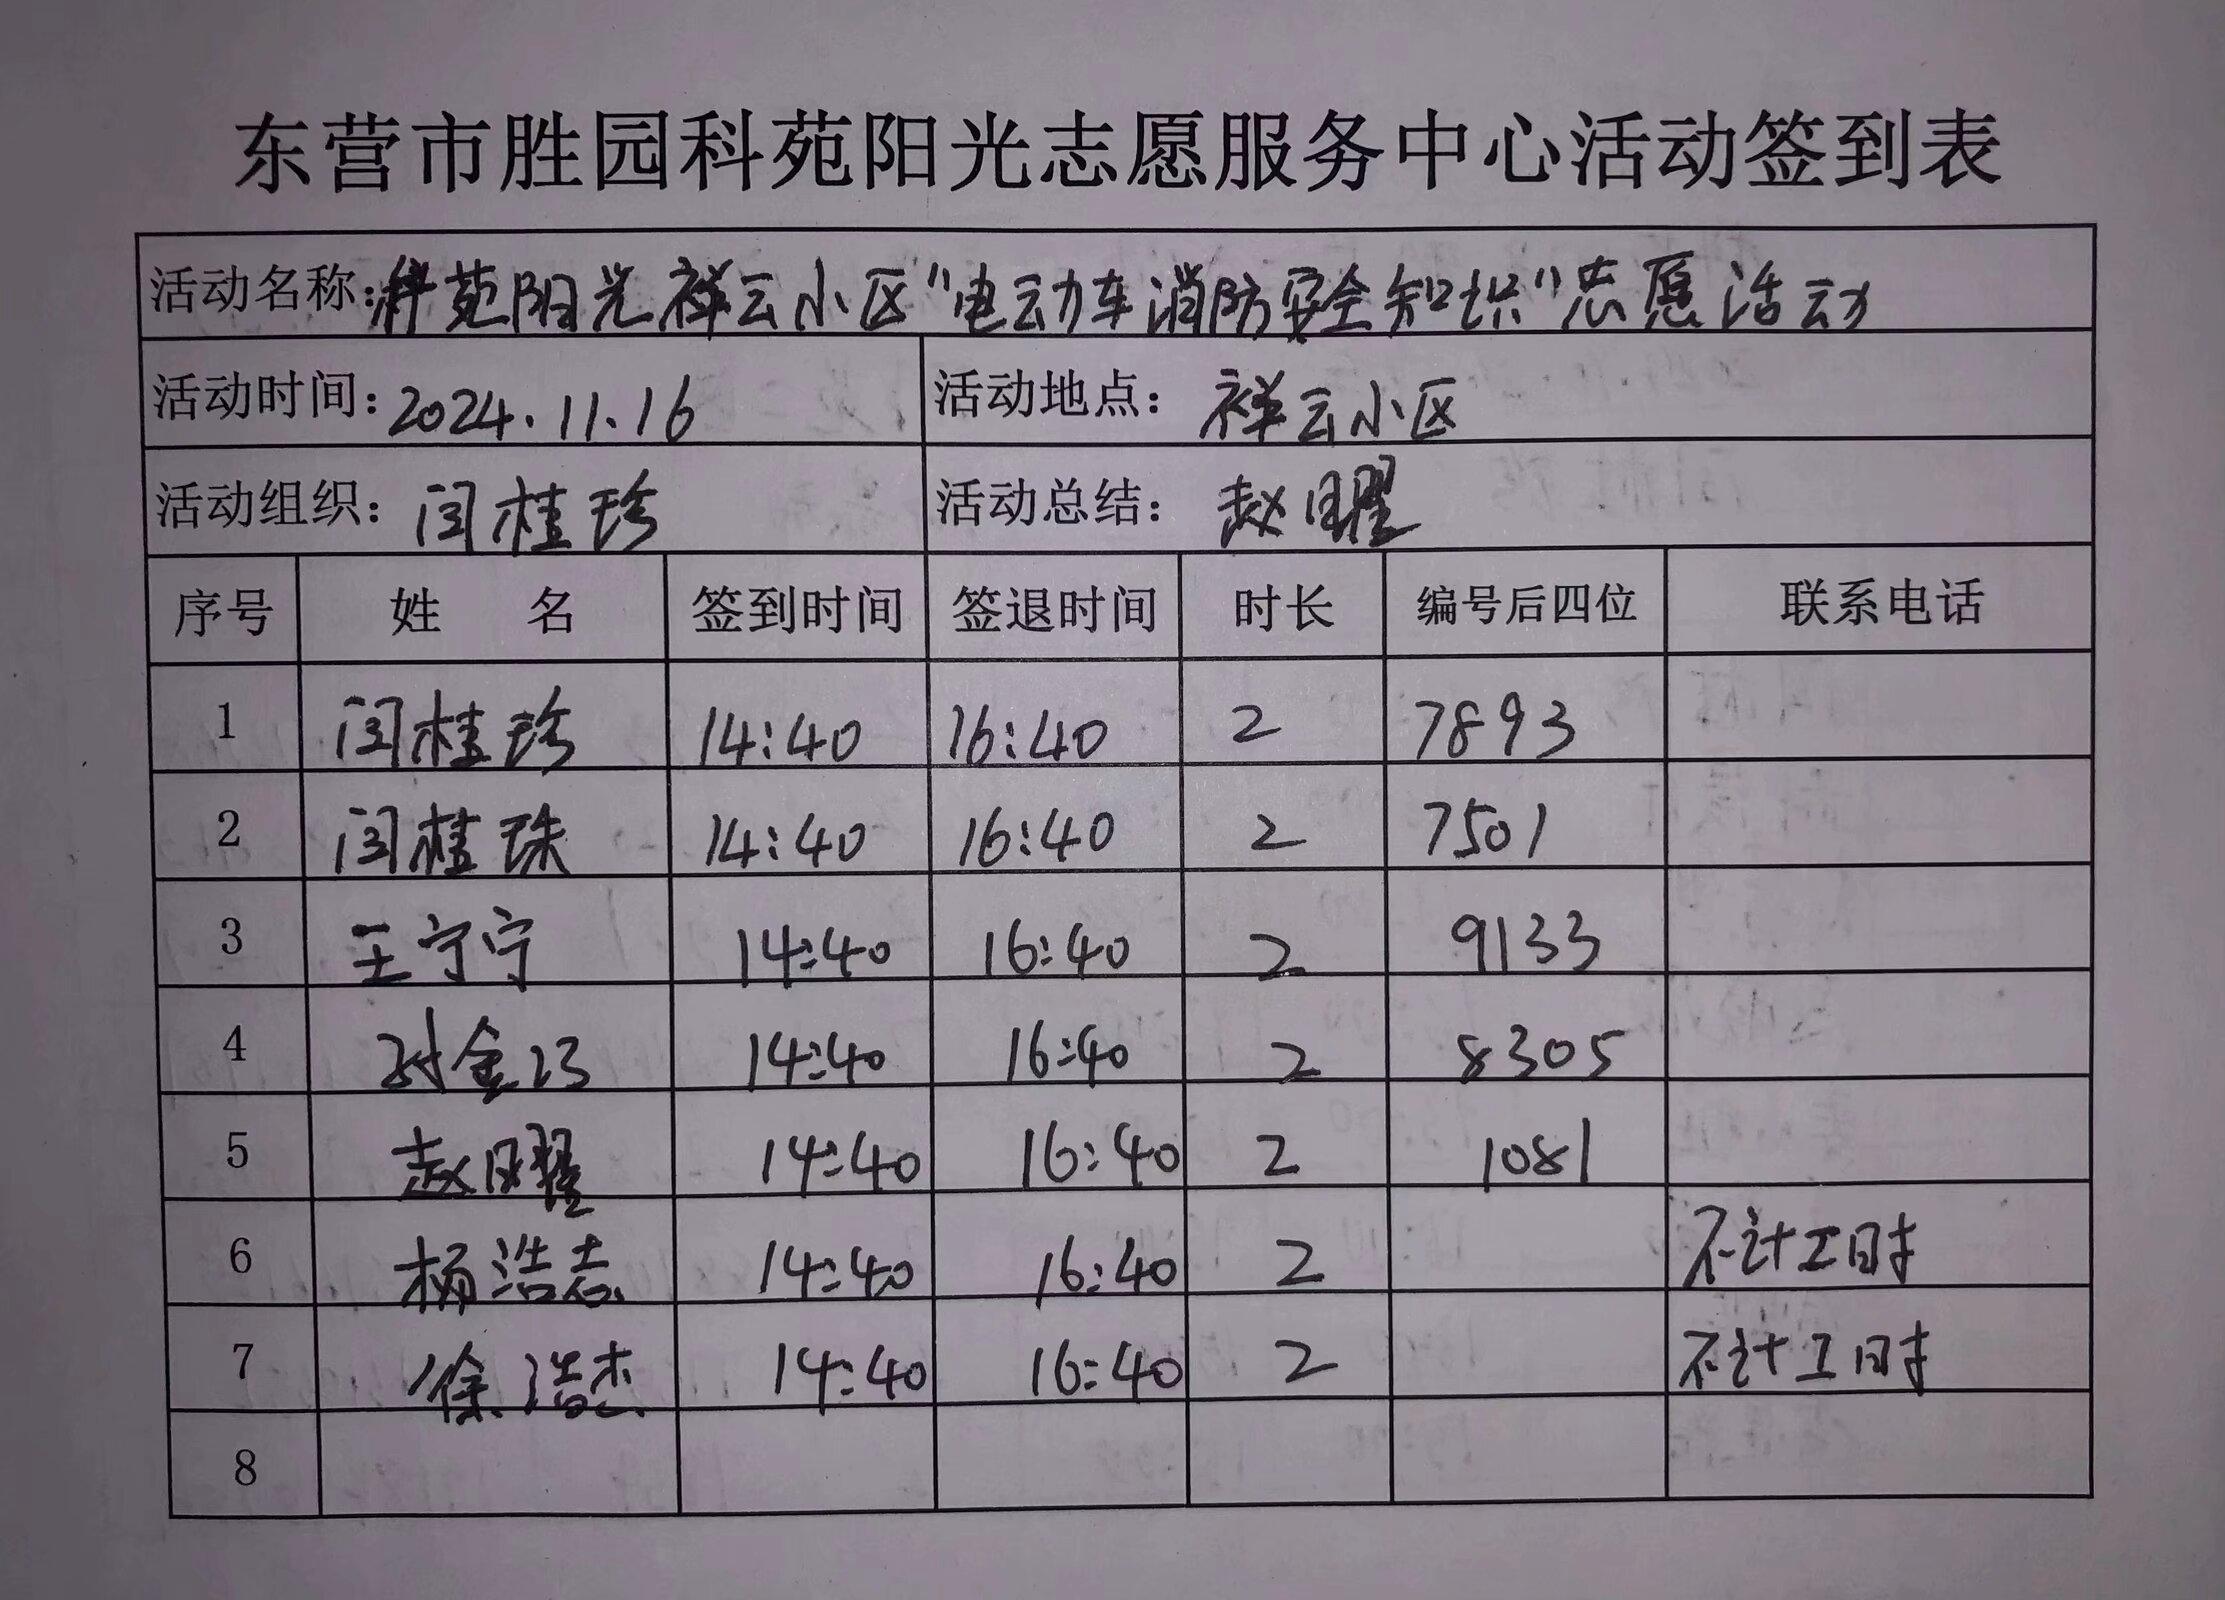 东营市胜园科苑阳光志愿服务中心活动签到表
活动名称:科苑阳光祥云小区"电动车消防安全知识"志愿活动
活动时间:2024.11.16 活动地点:祥云小区
活动组织:闫桂珍 活动总结:赵日曜
序号 姓 名 签到时间 签退时间 时长 编号后四位 联系电话
1 闫桂珍 14:40 16:40 2 7893
2 闫桂珠 14:40 16:40 2 7501
3 王宁宁 14:40 16:40 2 9133
4 金 14:40 16:40 2 8305
5 赵日曜 14:40 16:40 2 1081
6 杨浩志 14:40 16:40 2 不计工时
7 徐浩杰 14:40 16:40 2 不计工时
8